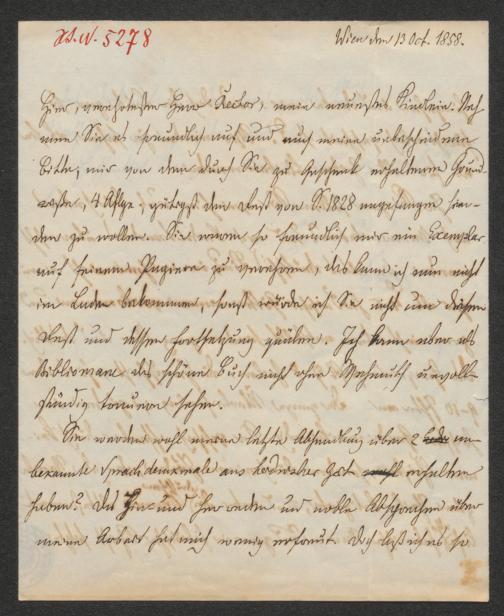 H.S.N. 5278
Wien den 13 Oct. 1858.
Hier, verehrtester Herr Rector, mein neuestes Kindlein. Neh-
men Sie es freundlich auf und auch meine unbescheidene
Bitte, mir von dem durch Sie zu Geschenk erhaltenen Grund-
risse, 4 Aflge; gütigst den Rest von S. 1828 angefangen sen-
den zu wollen. Sie waren so freundlich mir ein Exemplar
auf feinem Papiere zu verehren, das kann ich nun nicht
im Laden bekommen, sonst würde ich Sie nicht um diesen
Rest und dessen Fortsetzung quälen. Ich kann aber als
Bibliomane das schöne Buch nicht ohne Wehmuth unvoll-
ständig trauern sehen.
Sie werden wohl meine letzte Abhandlung über 2 un-
bekannte Sprachdenkmale aus heidnischer Zeit erhalten
haben? Das Hin- und Herreden und noble Absprechen über
meine Arbeit hat mich wenig erfreut. Doch laß ich es so